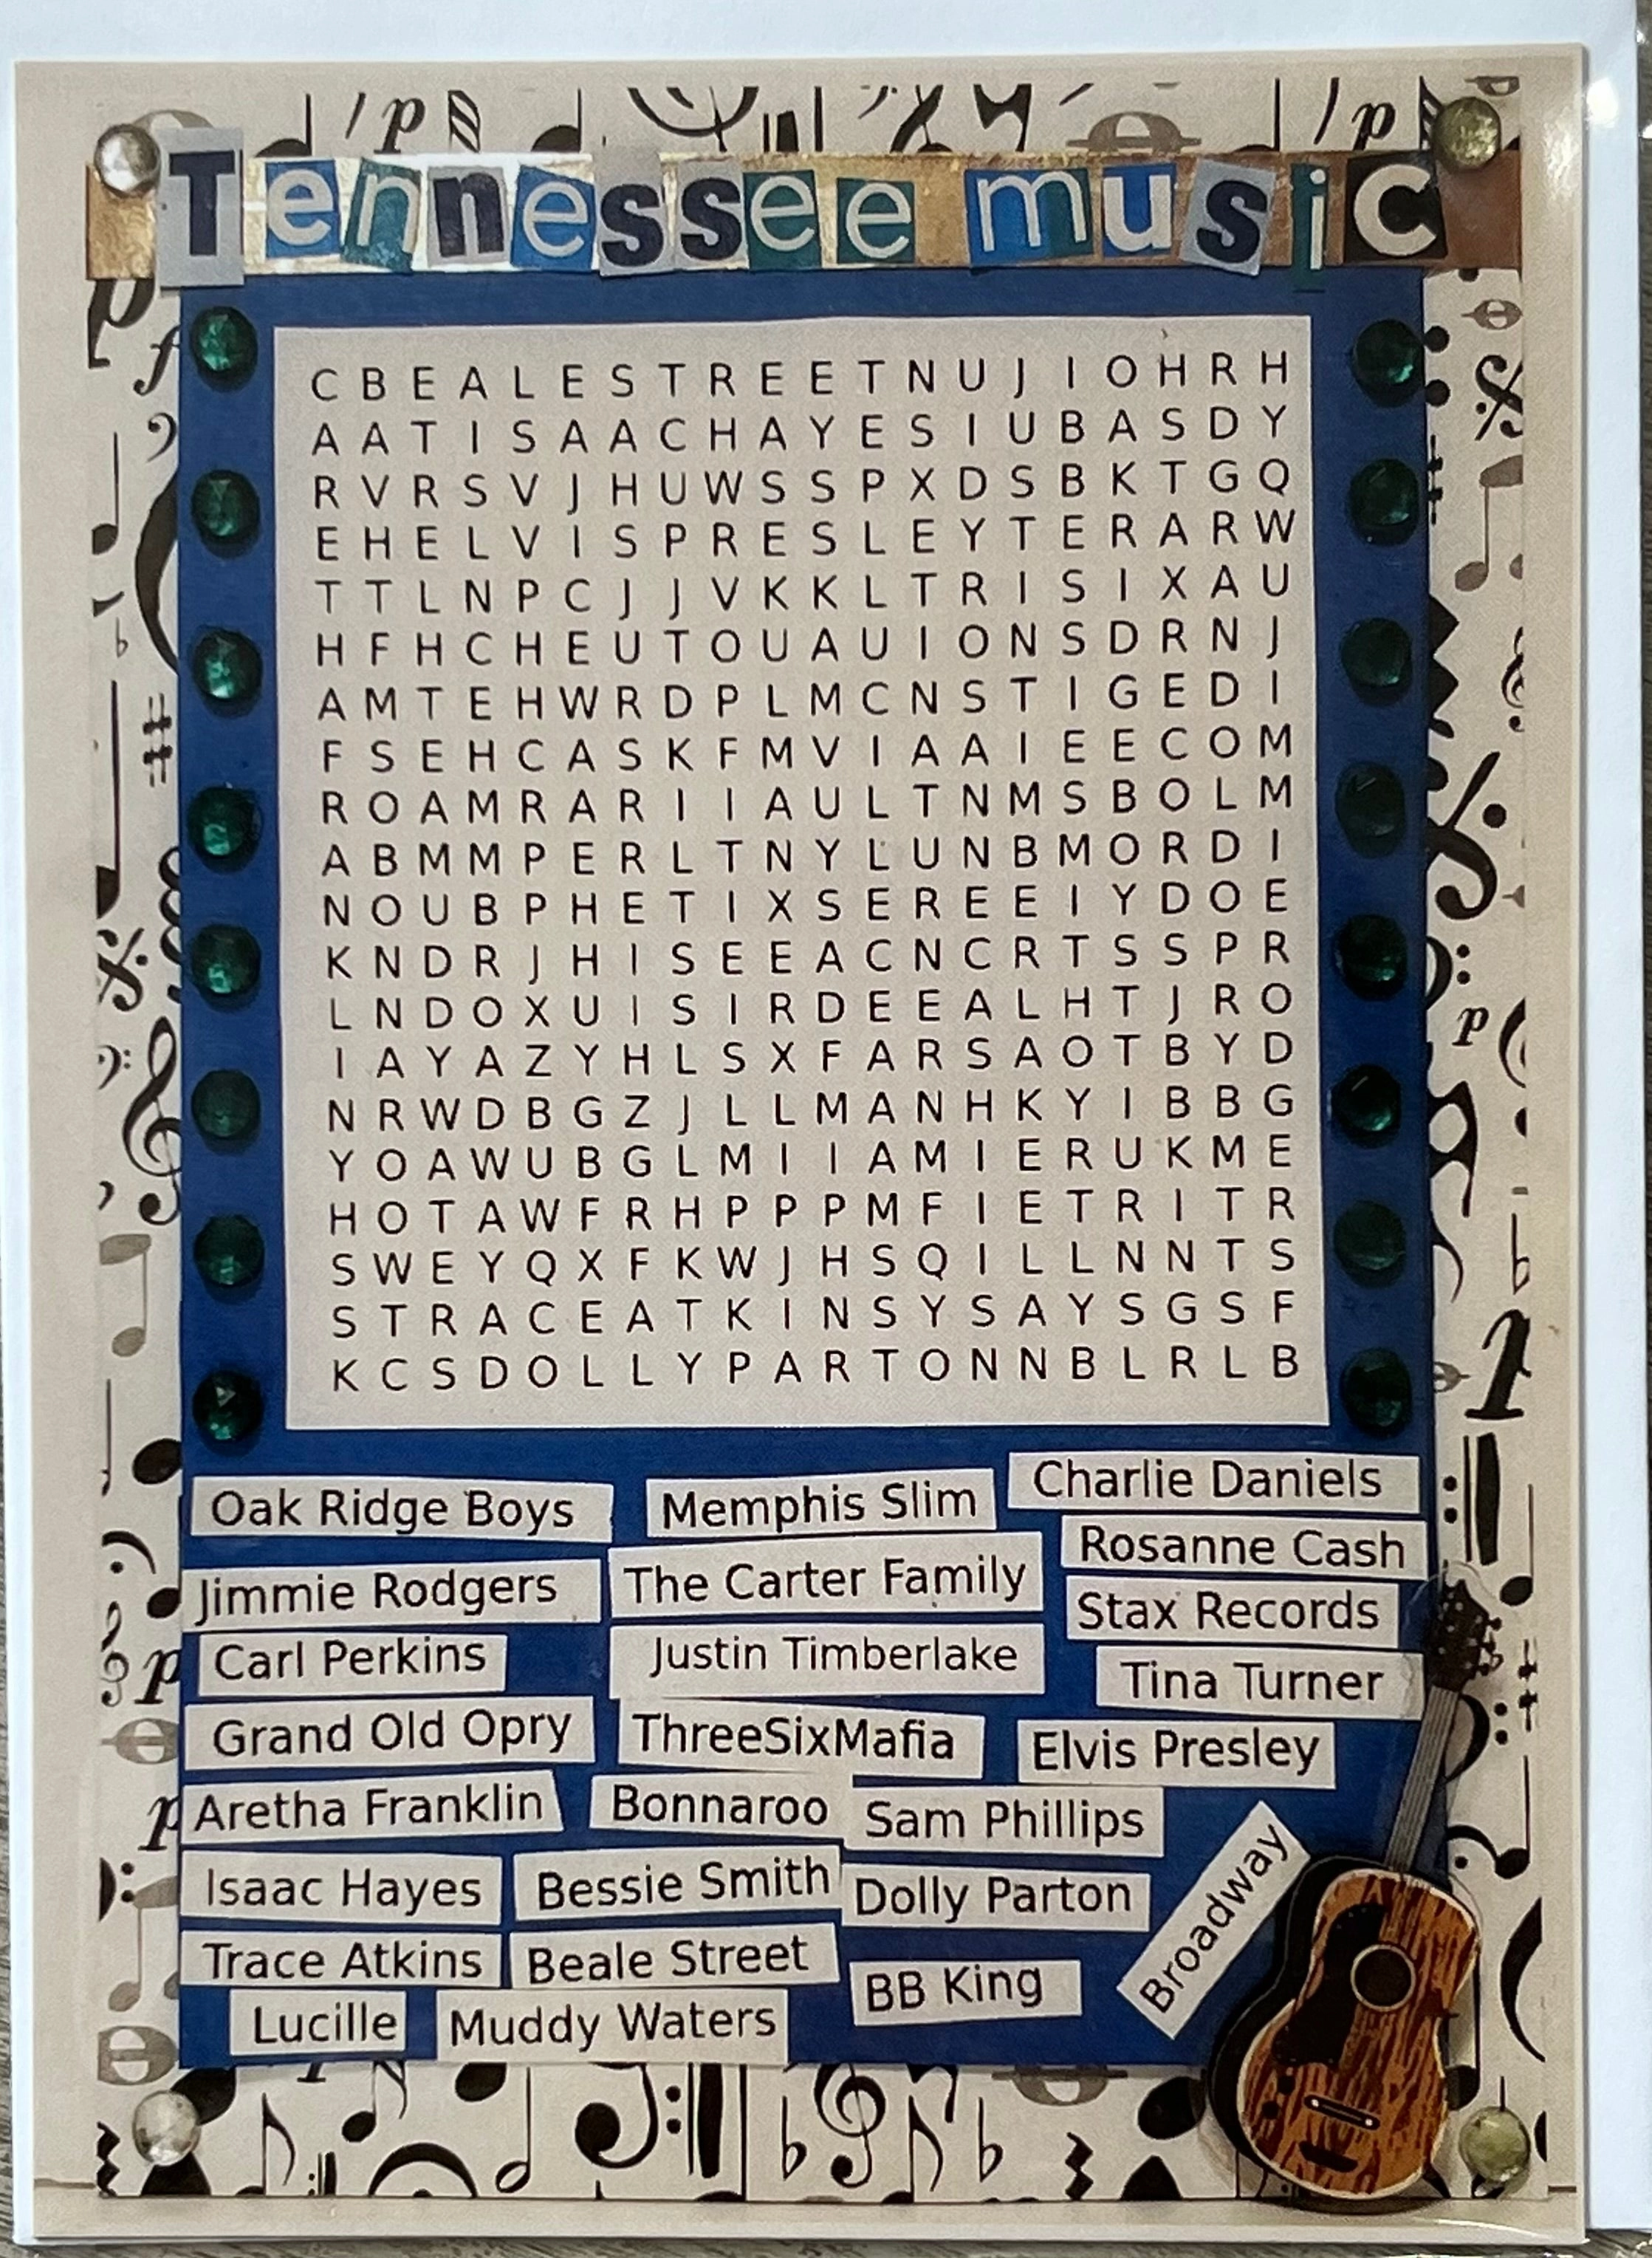 Tennessee music
C B E A L E S T R E E T N U J I O H R H
A A T I S A A C H A Y E S I U B A S D Y
R V R S V J H U W S S P X D S B K T G Q
E H E L V I S P R E S L E Y T E R A R W
T T L N P C J J V K K L T R I S I X A U
H F H C H E U T O U A U I O N S D R N J
A M T E H W R D P L M C N S T I G E D I
F S E H C A S K F M V I A A I E E C O M
R O A M R A R I I A U L T N M S B O L M
A B M M P E R L T N Y L U N B M O R D I
N O U B P H E T I X S E R E E I Y D O E
K N D R J H I S E E A C N C R T S S P R
L N D O X U I S I R D E E A L H T J R O
I A Y A Z Y H L S X F A R S A O T B Y D
N R W D B G Z J L L M A N H K Y I B B G
Y O A W U B G L M I I A M I E R U K M E
H O T A W F R H P P P M F I E T R I T R
S W E Y Q X F K W J H S Q I L L N N T S
S T R A C E A T K I N S Y S A Y S G S F
K C S D O L L Y P A R T O N N B L R L B
Oak Ridge Boys Memphis Slim Charlie Daniels
Rosanne Cash
Jimmie Rodgers The Carter Family
Stax Records
Carl Perkins Justin Timberlake Tina Turner
Grand Old Opry ThreeSixMafia Elvis Presley
Aretha Franklin Bonnaroo Sam Phillips
Isaac Hayes Bessie Smith Dolly Parton
Broadway
Trace Atkins Beale Street BB King
Lucille Muddy Waters